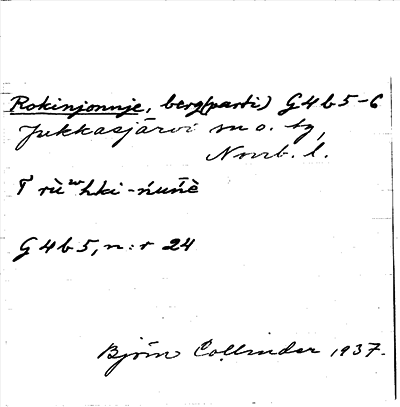 Rokinjonnje, berg(parti) G4b5-6
Jukkasjärvi sn o. tg,
Norrb. l.
G4b5, n:r 24
Björn Collinder 1937.